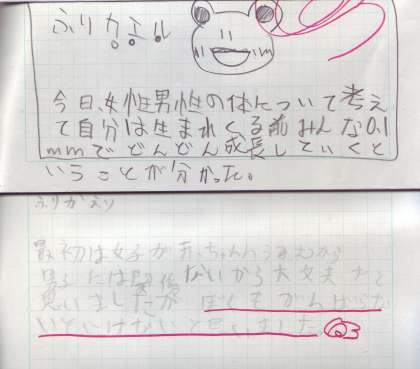 ふりカエル
今日、女性男性の体について考え
て自分は生まれくる前みんな0.1
mmでどんどん成長していくと
いうことが分かった。
ふりかえり
最初は女子が赤ちゃんうむから
男子には関係ないから大丈夫だと
思いましたが ぼくもがんばらな
いといけないと思いました